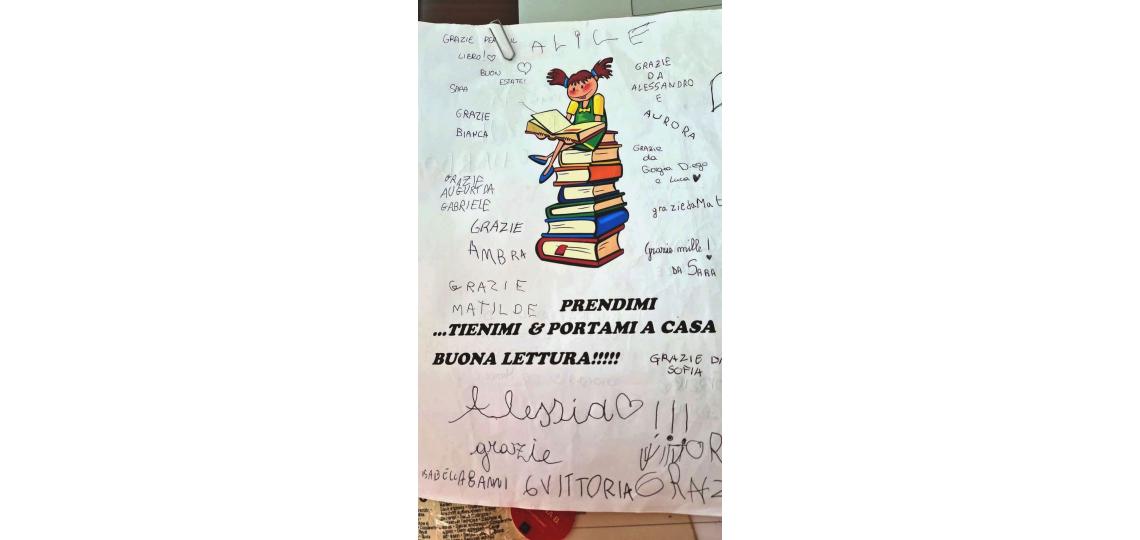 GRAZIE PER IL
LIBRO!
BUON
ESTATE!
SARA
ALICE
GRAZIE
BIANCA
GRAZIE
AUGURI DA
GABRIELE
GRAZIE
AMBRA
GRAZIE
MATILDE
GRAZIE
DA
ALESSANDRO
E
AURORA
GRAZIE
da
Giorgia Diego
e Luca
grazie da Mat
Grazie mille!
DA SARA
PRENDIMI
...TIENIMI & PORTAMI A CASA
BUONA LETTURA!!!!!
GRAZIE DA
SOFIA
Alessia !!!
grazie
VITTOR
ISABELLA 8 ANNI 6 VITTORIA GRAZ